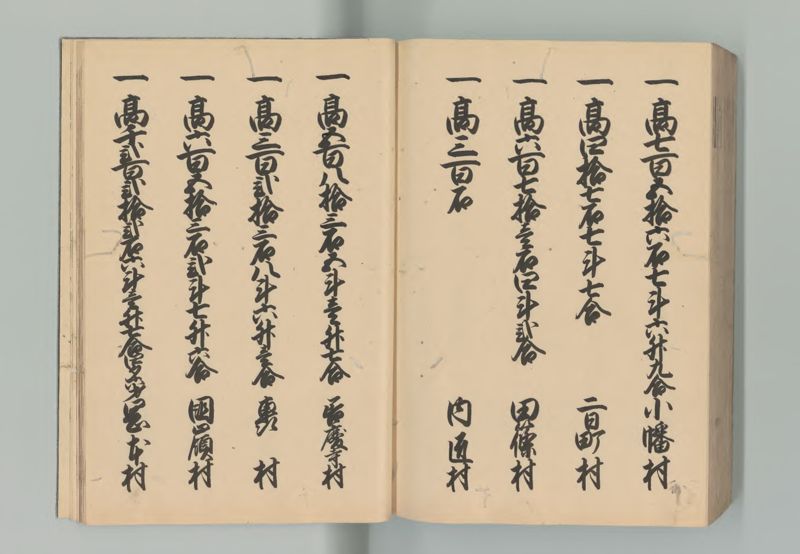 一高七百五拾六石七斗六升九合小幡村
一高四拾七石七斗七合 二日町村
一高六百七拾壱石四斗弐合 田篠村
一高三百石 内匠村
一高五百八拾三石五斗壱升七合 善慶寺村
一高三百弐拾三石八斗六升壱合 轟村
一高六百五拾三石弐斗七升六合 国嶺村
一高千弐百弐拾弐石六斗壱升七合 岡本村